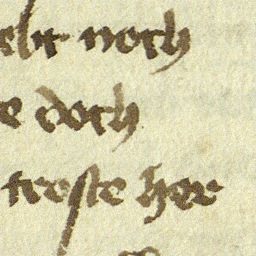 ebt noch
e doch
troſte her